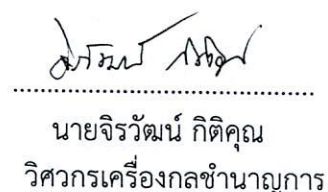 นายจิรวัฒน์ กิติคุณ
วิศวกรเครื่องกลชำนาญการ